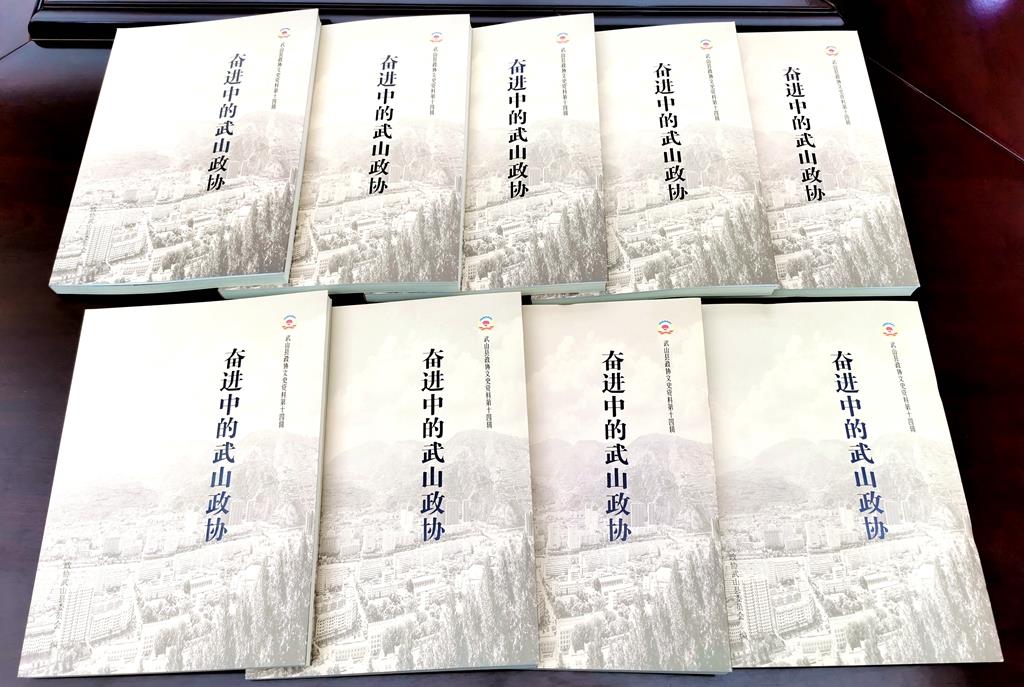 武山县政协文史资料第十四辑
奋进中的武山政协
武山县政协文史资料第十四辑
奋进中的武山政协
武山县政协文史资料第十四辑
奋进中的武山政协
武山县政协文史资料第十四辑
奋进中的武山政协
武山县政协文史资料第十四辑
奋进中的武山政协
武山县政协文史资料第十四辑
奋进中的武山政协
武山县政协文史资料第十四辑
奋进中的武山政协
武山县政协文史资料第十四辑
奋进中的武山政协
武山县政协文史资料第十四辑
奋进中的武山政协